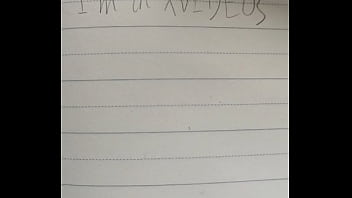 I'm in XVIDEOS